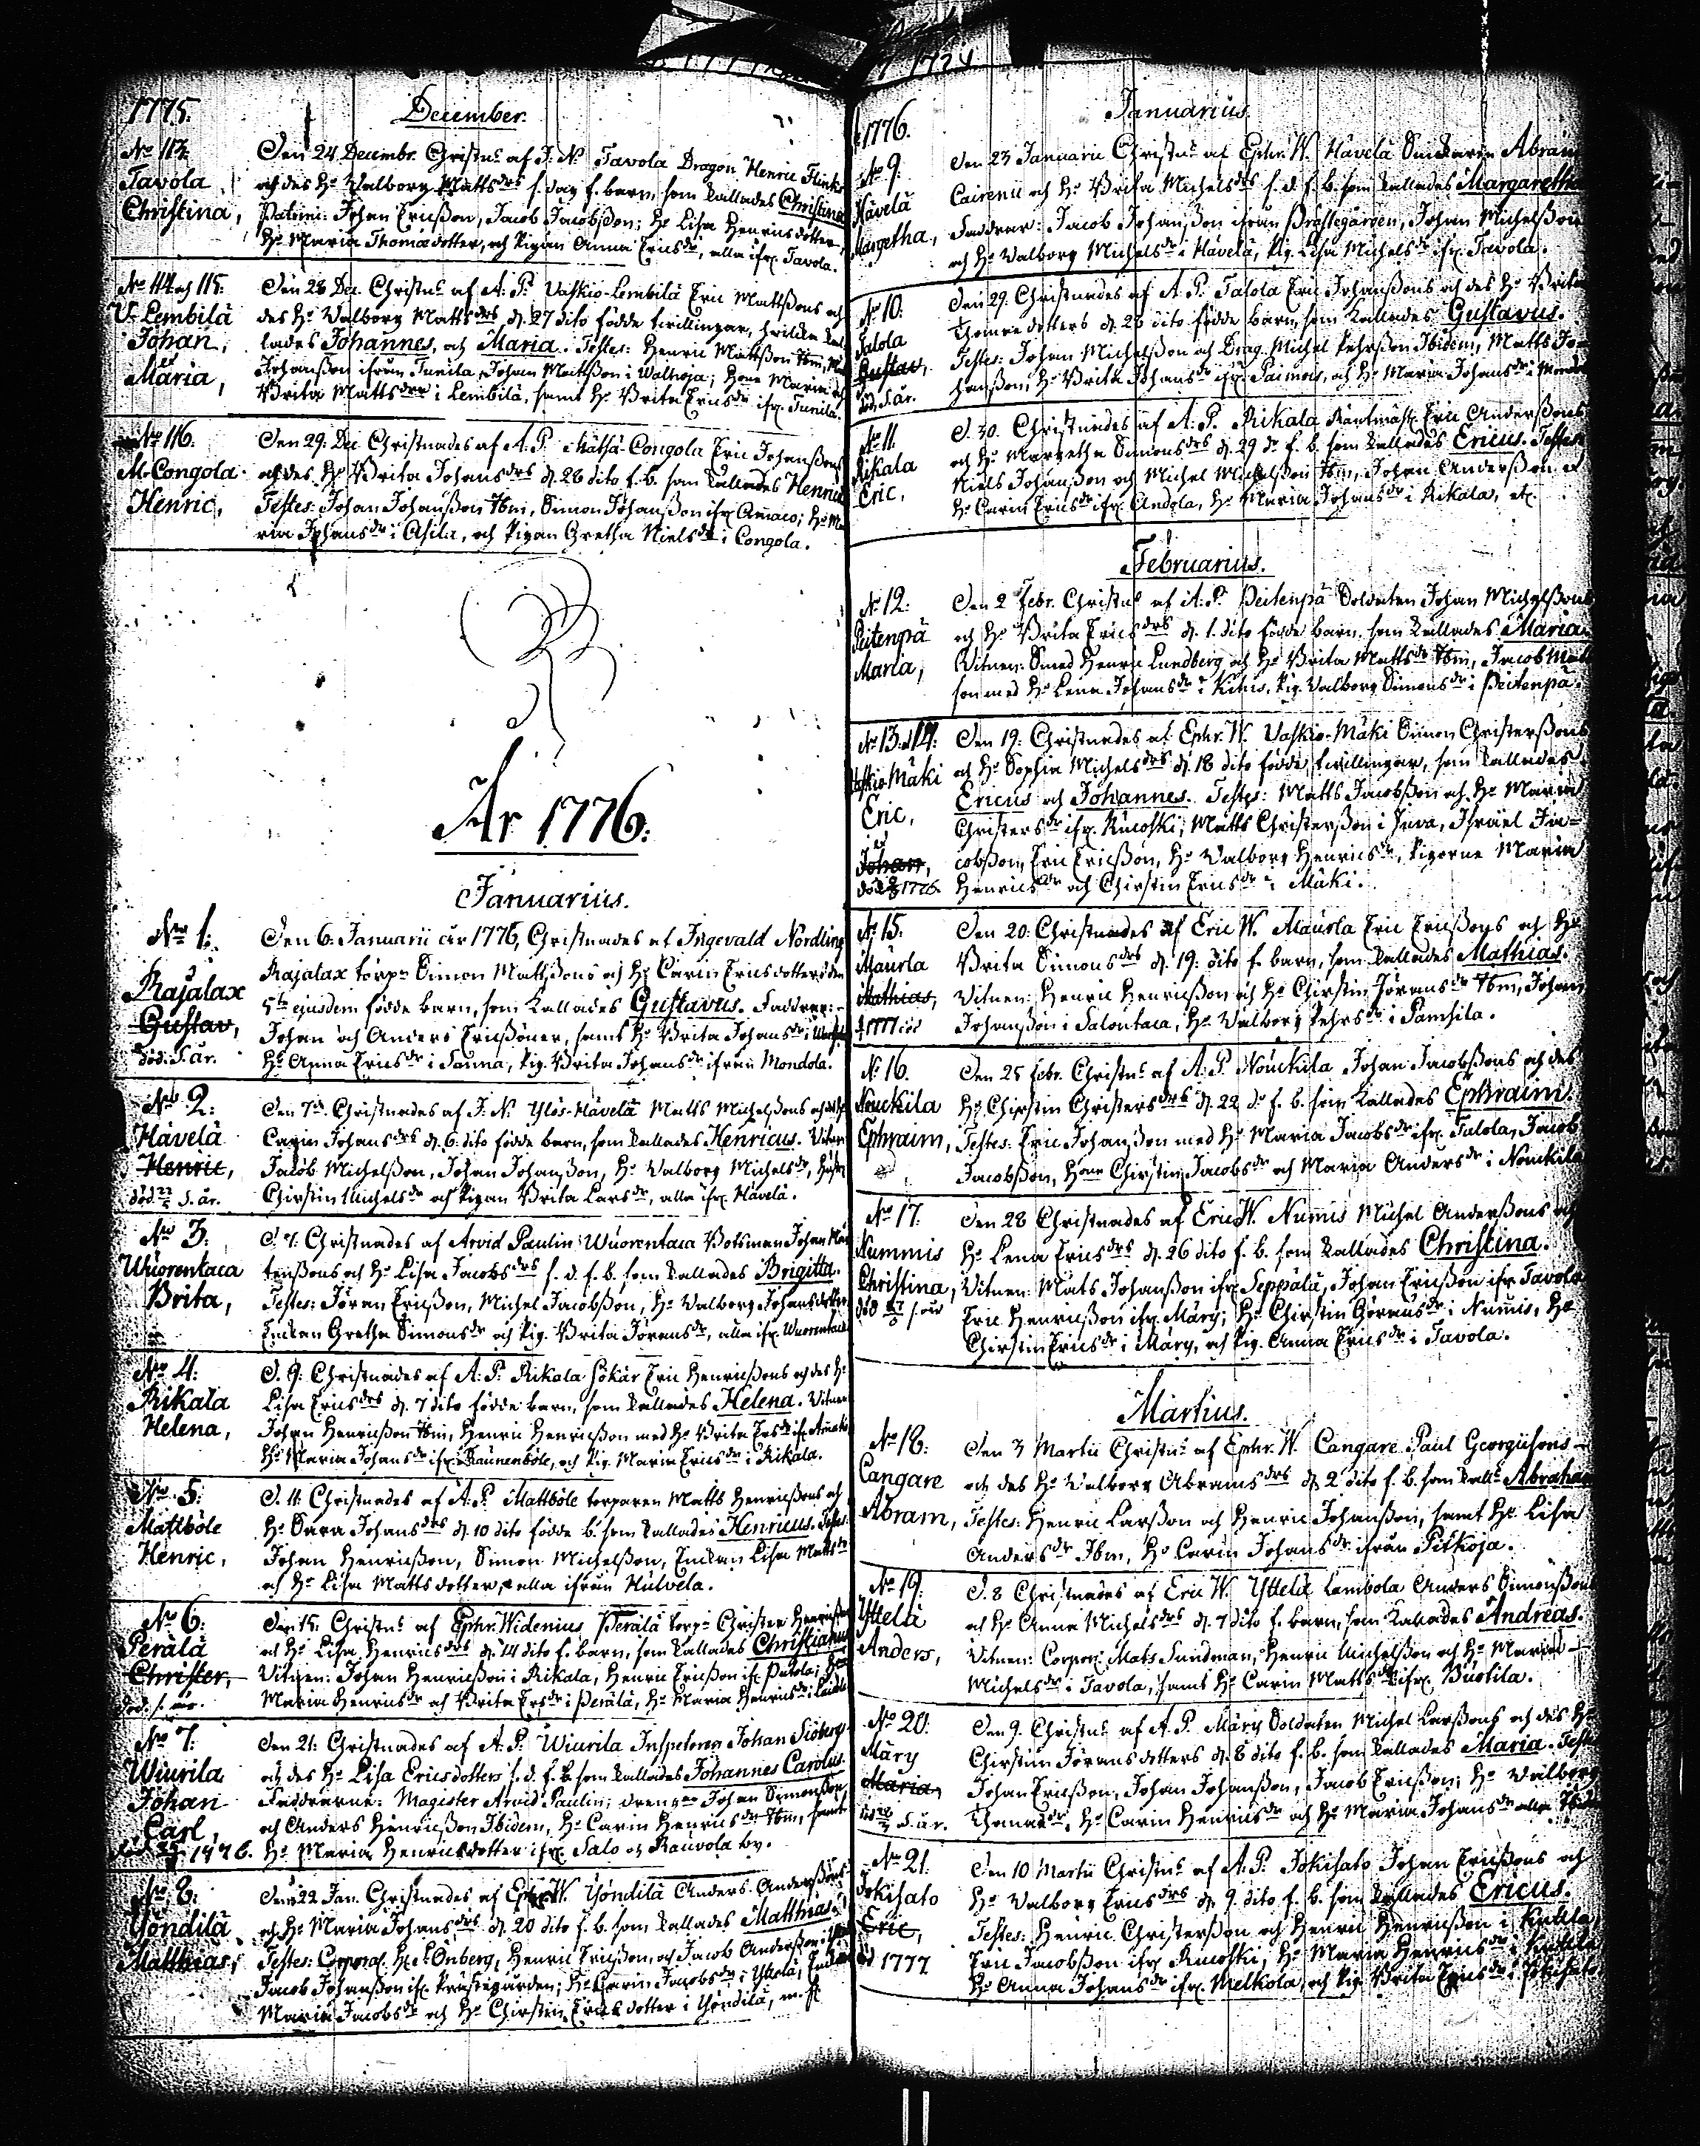 1775.
December.
No 113.
Tavola
Christina,
Den 24 Decembr. Christns af J. N. Tavola Dragon Henric Flinks
och des Ho Valborg Matts drs s. dag f. barn, som kallades Christina
Patrini: Johan Ericsson, Jacob Jacobsson; Ho Lisa Henricsdotter,
Ho Maria Thomædotter, och Pigan Anna Erics dr, alla ifr. Tavola.
No 114 och 115.
V. Lembilä
Johan,
et
Maria,
Den 28 Dec. Christns af A. P. Vaskio-Lembilä Eric Mattssons och
des Ho Valborg Matts drs d. 27 dito födde tvillingar, hvilka kal
lades Johannes, och Maria. Testes: Henric Mattsson Ibm,
Johansson ifrån Tunila, Johan Mattsson i Waltoja; Hone Maria och
Brita Matts drar i Lembilä, samt Ho Brita Erics dr ifr. Tunila.
No 116.
M. Congola
Henric,
Den 29. Dec Christnades af A. P. Mätsä-Congola Eric Johanssons
och des Ho Brita Johans drs d. 28 dito f. b. som kallades Henricus
Testes: Johan Johansson Ibm, Simon Johansson ifr. Ammaco; Ho Ma
ria Johans dr i Asila, och Pigan Gretha Niels dr i Congola.
År 1776.
Januarius.
No 1.
Rajalax
Gustav,
död. s. år.
Den 6. Januarii år 1776, Christnades af Ingevald Nordling
Rajalax torpn Simon Matssons och Ho Carin Ericsdotters den
5te ejusdem födde barn, som kallades Gustavus. Faddrar:
Johan och Anders Ericssöner, samt Ho Brita Johans dr i
Ho Anna Erics dr i Sauna, Pig. Brita Johans dr ifrån Mondola.
No 2:
Håvelä
Henric,
död s. år.
Den 7de. Christnades af J. N. Ylös-Håvelä Matts Michelssons och
Carin Johans drs d. 6. dito födde barn, som kallades Henricus. Vitnen
Jacob Michelsson, Johan Johansson, Ho Valborg Michels dr,
Chirstin Michels dr och Pigan Brita Lars dr, alla ifr. Håvelä.
No 3:
Wuorentaca
Brita,
D. 7. Christnades af Arvid Paulin Wuorentaca Botsman Johan
tenssons och Ho Lisa Jacobs drs s. d. f. b. som kallades Brigitta.
Testes: Jöran Ericsson, Michel Jacobsson, Ho Valborg Johansdotter
Enckan Gretha Simons dr och Pig. Brita Jörans dr, alla ifr. Wuorentaca
No 4:
Rikala
Helena,
D. 9: Christnades af A. P. Rikala Sökär Eric Henricssons och des Ho
Lisa Erics drs d. 7 dito födde barn, som kallades Helena. Vitnen
Johan Henricsson Ibm, Henric Henricsson med Ho Brita
Ho Maria Johans dr ifr. Raunenböle, och Pig. Maria Erics dr i Rikala.
No 5:
Mattböle
Henric,
D. 11. Christnades af A. P. Mattböle torparen Matts Henricssons och
Ho Sara Johans drs d. 10 dito födde b. som kallades Henricus. Testes
Johan Henricsson, Simon Michelsson, Enckan Lisa Matts dr
och Ho Lisa Mattsdotter, alla ifrån Hulvela.
No 6:
Perälä
Christer,
död. s. år.
Den 15. Christns af Ephr. Widenius Perälä torpn Christer Henricssons
och Ho Lisa Henrics drs d. 14 dito f. barn, som kallades Christianus
Vitnen: Johan Henricsson i Rikala, Henric Ericsson ifr. Putola; Ho
Maria Henrics dr och Brita Ers dr i Perälä, Ho Maria Henrics dr i
No 7:
Wiurila
Johan
Carl,
1776.
Den 21: Christnades af A. P. Wiurila Inspectoren Johan Siöberg
och des Ho Lisa Ericsdotters s. d. f. b. som kallades Johannes Carolus.
Faddrarne: Magister Arvid Paulin; drengne Johan Simonsson
och Anders Henricsson Ibidem, Ho Carin Henrics dr Ibm, samt
Ho Maria Henricsdotter ifr. Salo och Rauvola by.
No 8:
Yöndilä
Matthias,
Den 22 Jan. Christnades af Ephr. W. Yöndilä Anders Anderssons
och Ho Maria Johans drs d. 20 dito f. b. som kallades Matthias.
Testes: Corporal Önberg, Henric Ericsson, och Jacob Andersson
Jacob Johansson ifr. Prästegården; Ho Carin Jacobs dr i Yttelä,
Maria Jacobs dr och Ho Chirstin Ericsdotter i Yöndilä, m. fl
1776.
Januarius.
No 9.
Håvelä
Margetha,
Den 23 Januarii Christns af Ephr. W. Håvelä Smedaren Abram
Cairenii och Ho Brita Michels drs s. d. f. b. som kallades Margaretha
Faddrar: Jacob Johansson ifrån Prästegården, Johan Michelsson
och Ho Valborg Michels dr i Håvelä, Pig. Lisa Michels dr ifr. Tavola.
No 10.
Talola
Gustav,
död. s. år.
Den 29. Christnades af A. P. Talola Eric Johanssons och des Ho Brita
Thomædotters d. 28 dito födde barn, som kallades Gustavus.
Testes: Johan Michelsson och Drag. Michel Pehrsson Ibidem, Matts Jo
hansson, Ho Brita Johans dr ifr. Paimois, och Ho Maria Johans dr i
No 11.
Rikala
Eric,
D. 30. Christnades af A. P. Rikala Rautmäst. Eric Anderssons
och Ho Margetha Simons drs d. 29 do f. b. som kallades Ericus. Testes
Niels Johansson och Michel Michelsson Ibm, Johan Andersson et
Ho Carin Erics dr ifr. Andola, Ho Maria Johans dr i Rikala, etc.
Februarius.
No 12:
Peitenpä
Maria,
Den 2 Febr. Christns af A. P. Peitenpä Soldaten Johan Michelssons
och Ho Brita Erics drs d. 1. dito födde barn, som kallades Maria.
Vitnen: Smed Henric Lundberg och Ho Brita Matts dr Ibm, Jacob
son med Ho Lena Johans dr i Kihis, Pig. Valborg Simons dr i Peitenpä.
No 13. et 14:
Vaskio-Mäki
Eric,
et
Johan,
död 1776.
Den 19: Christnades af Ephr. W. Vaskio-Mäki Simon Christerssons
och Ho Sophia Michels drs d. 18 dito födde tvillingar, som kallades
Ericus och Johannes. Testes: Matts Jacobsson och Ho Maria
Christers dr ifr. Kucoski; Matts Christersson i Inva, Israel Ja=
cobsson, Eric Ericsson, Ho Valborg Henrics dr, Pigorne Maria
Henrics dr och Chirstin Erics dr i Mäki.
No 15:
Maurla
Mathias,
† 1777
Den 20. Christnades af Eric W. Maurla Eric Ericssons och Ho
Brita Simons drs d. 19: dito f. barn, som kallades Mathias.
Vitnen: Henric Henricsson och Ho Chirstin Jörans dr Ibm, Johan
Johansson i Salontaca, Ho Valborg Pehrs dr i Pamhila.
No 16.
Nouckila
Ephraim,
Den 25 Febr. Christns af A. P. Nouckila Johan Jacobssons och des
Ho Chirstin Christers drs d. 22 do f. b. som kallades Ephraim.
Testes: Eric Johansson med Ho Maria Jacobs dr ifr. Talola, Jacob
Jacobsson, Hone Chirstin Jacobs dr och Maria Anders dr i Nouckila
No 17.
Nummis
Christina,
död
Den 28 Christnades af Eric W. Nummis Michel Anderssons och
Ho Lena Erics drs d. 26 dito f. b. som kallades Christina.
Vitnen: Mats Johansson ifr. Seppälä, Johan Ericsson ifr. Tavola
Eric Henricsson ifr. Märy; Ho Chirstin Görans dr i Nummis, Ho
Chirstin Erics dr i Märy, och Pig. Anna Erics dr i Tavola.
Martius.
No 18:
Cangare
Abram,
Den 3 Martii Christns af Ephr. W. Cangare Paul Georgiisons
och des Ho Valborg Abrams drs d. 2 dito f. b. som kalls Abraham
Testes: Henric Larsson och Henric Johansson, samt Ho Lisa
Anders dr Ibm, Ho Carin Johans dr ifrån Pitkoja.
No 19.
Yttelä
Anders,
D. 8 Christnades af Eric W. Yttelä Lambola Anders Simonssons
och Ho Anna Michels drs d. 7 dito f. barn, som kallades Andreas.
Vitnen: Corpor. Mats Sundman, Henric Michelsson och Ho Maria
Michels dr i Tavola, samt Ho Carin Matts dr ifr. Buotila.
No 20.
Märy
Maria,
s. år.
Den 9. Christns af A. P. Märy Soldaten Michel Larssons och des Ho
Chirstin Jöransdotters d. 8 dito f. b. som kallades Maria. Testes
Johan Ericsson, Johan Johansson, Jacob Ericsson; Ho Valborg
Thomæ dr, Ho Carin Henrics dr och Ho Maria Johans dr alla
No 21.
Jokisato
Eric,
1777
Den 10 Martii Christns af A. P. Jokisato Johan Ericssons och
Ho Valborg Erics drs d. 9. dito f. b. som kallades Ericus.
Testes: Henric Christersson och Henric Henricsson i Kukila,
Eric Jacobsson ifr. Kucoski, Ho Maria Henrics dr i Kukila
Ho Anna Johans dr ifr. Melkola, och Pig. Brita Erics dr i Jokisato